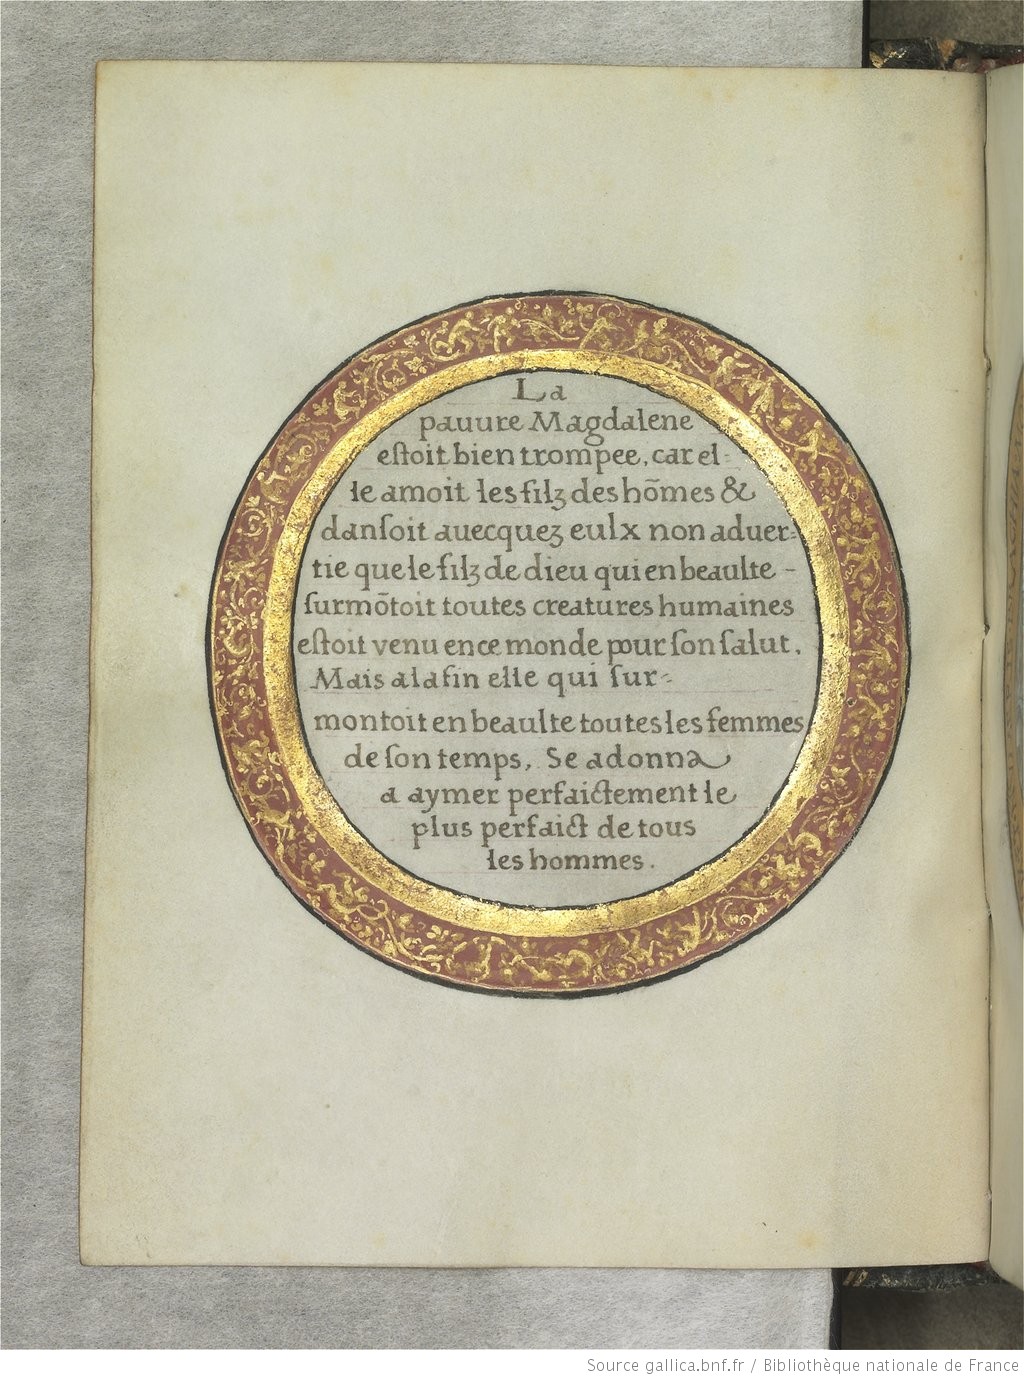 La
pauure Magdalene
eſtoit bien trompee, car el-
le amoit les filz des hõmes &
danſoit auecquez eulx non aduer-
tie que le filz de dieu qui en beaulte -
ſurmõtoit toutes creatures humaines
eſtoit venu en ce monde pour ſon ſalut.
Mais a la fin elle qui ſur-
montoit en beaulte toutes les femmes
de ſon temps, Se adonna
a aymer perfaictement le
plus perfaict de tous
les hommes.
Source gallica.bnf.fr / Bibliothèque nationale de France